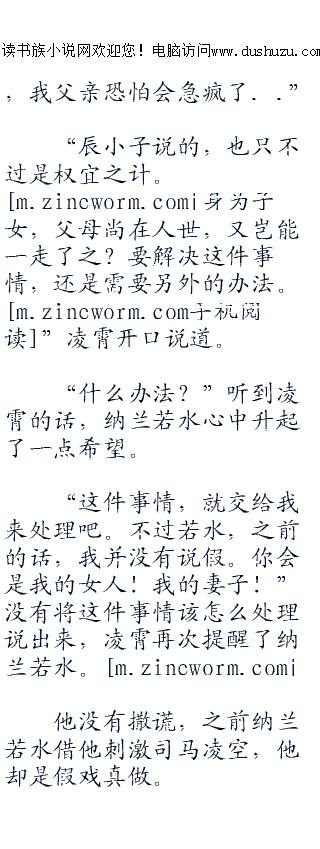 读书族小说网欢迎您！电脑访问www.dushuzu.com
，我父亲恐怕会急疯了．．”
“辰小子说的，也只不
过是权宜之计。
[m.zincworm.com|身为子
女，父母尚在人世，又岂能
一走了之？要解决这件事
情，还是需要另外的办法。
[m.zincworm.com手机阅
读]”凌霄开口说道。
“什么办法？”听到凌
霄的话，纳兰若水心中升起
了一点希望。
“这件事情，就交给我
来处理吧。不过若水，之前
的话，我并没有说假。你会
是我的女人！我的妻子！”
没有将这件事情该怎么处理
说出来，凌霄再次提醒了纳
兰若水。[m.zincworm.com|
他没有撒谎，之前纳兰
若水借他刺激司马凌空，他
却是假戏真做。